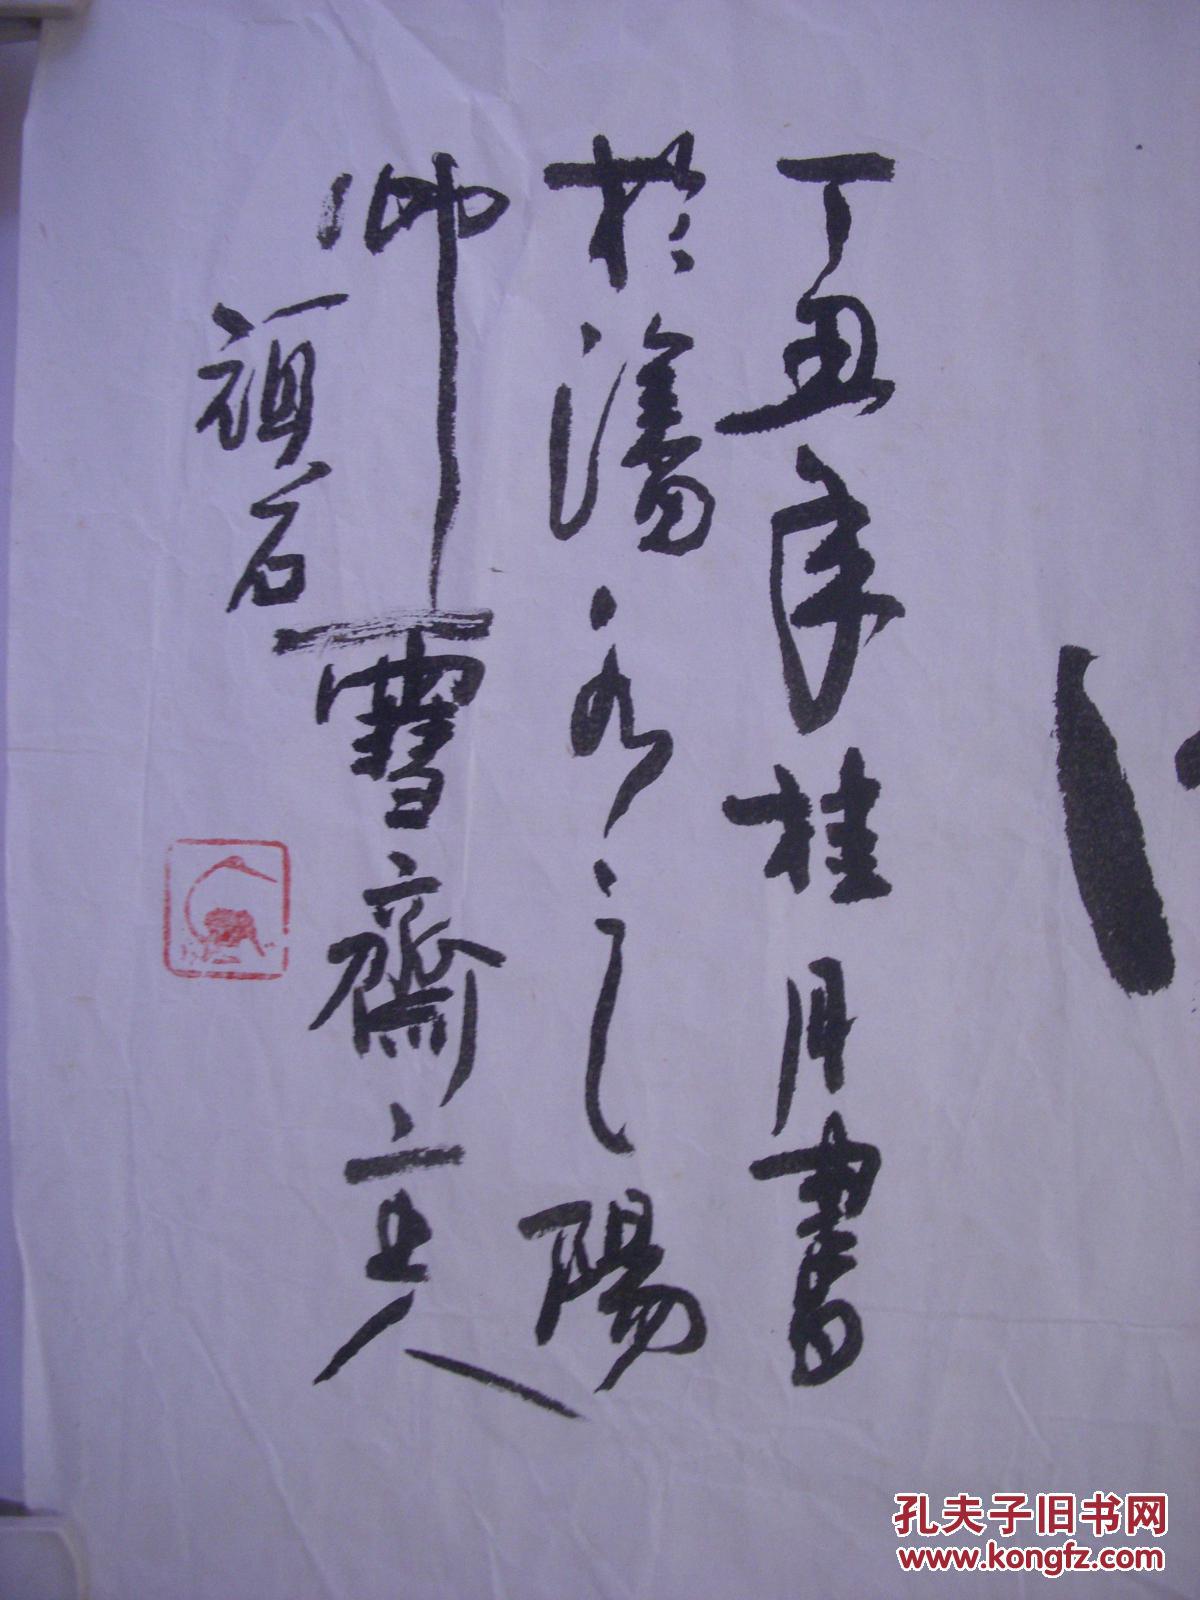 丁丑年桂月書
於瀋水之陽
仰雪齋主人
祖石
孔夫子旧书网
www.kongfz.com